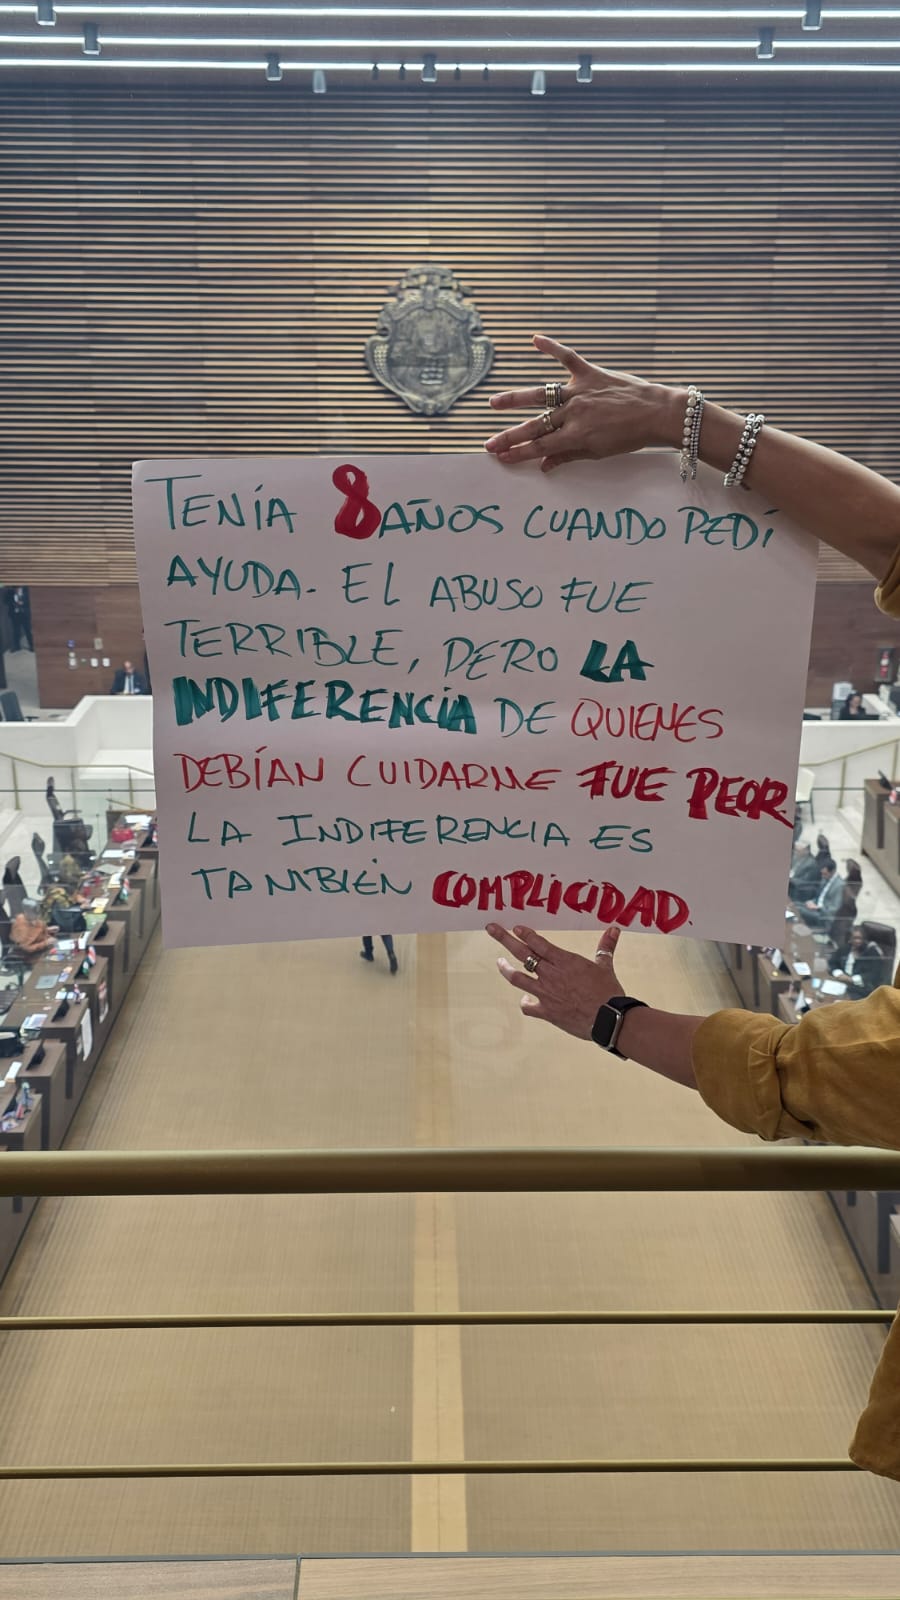 TENÍA 8 AÑOS CUANDO PEDÍ
AYUDA. EL ABUSO FUE
TERRIBLE, PERO LA
INDIFERENCIA DE QUIENES
DEBÍAN CUIDARME FUE PEOR
LA INDIFERENCIA ES
TAMBIÉN COMPLICIDAD.